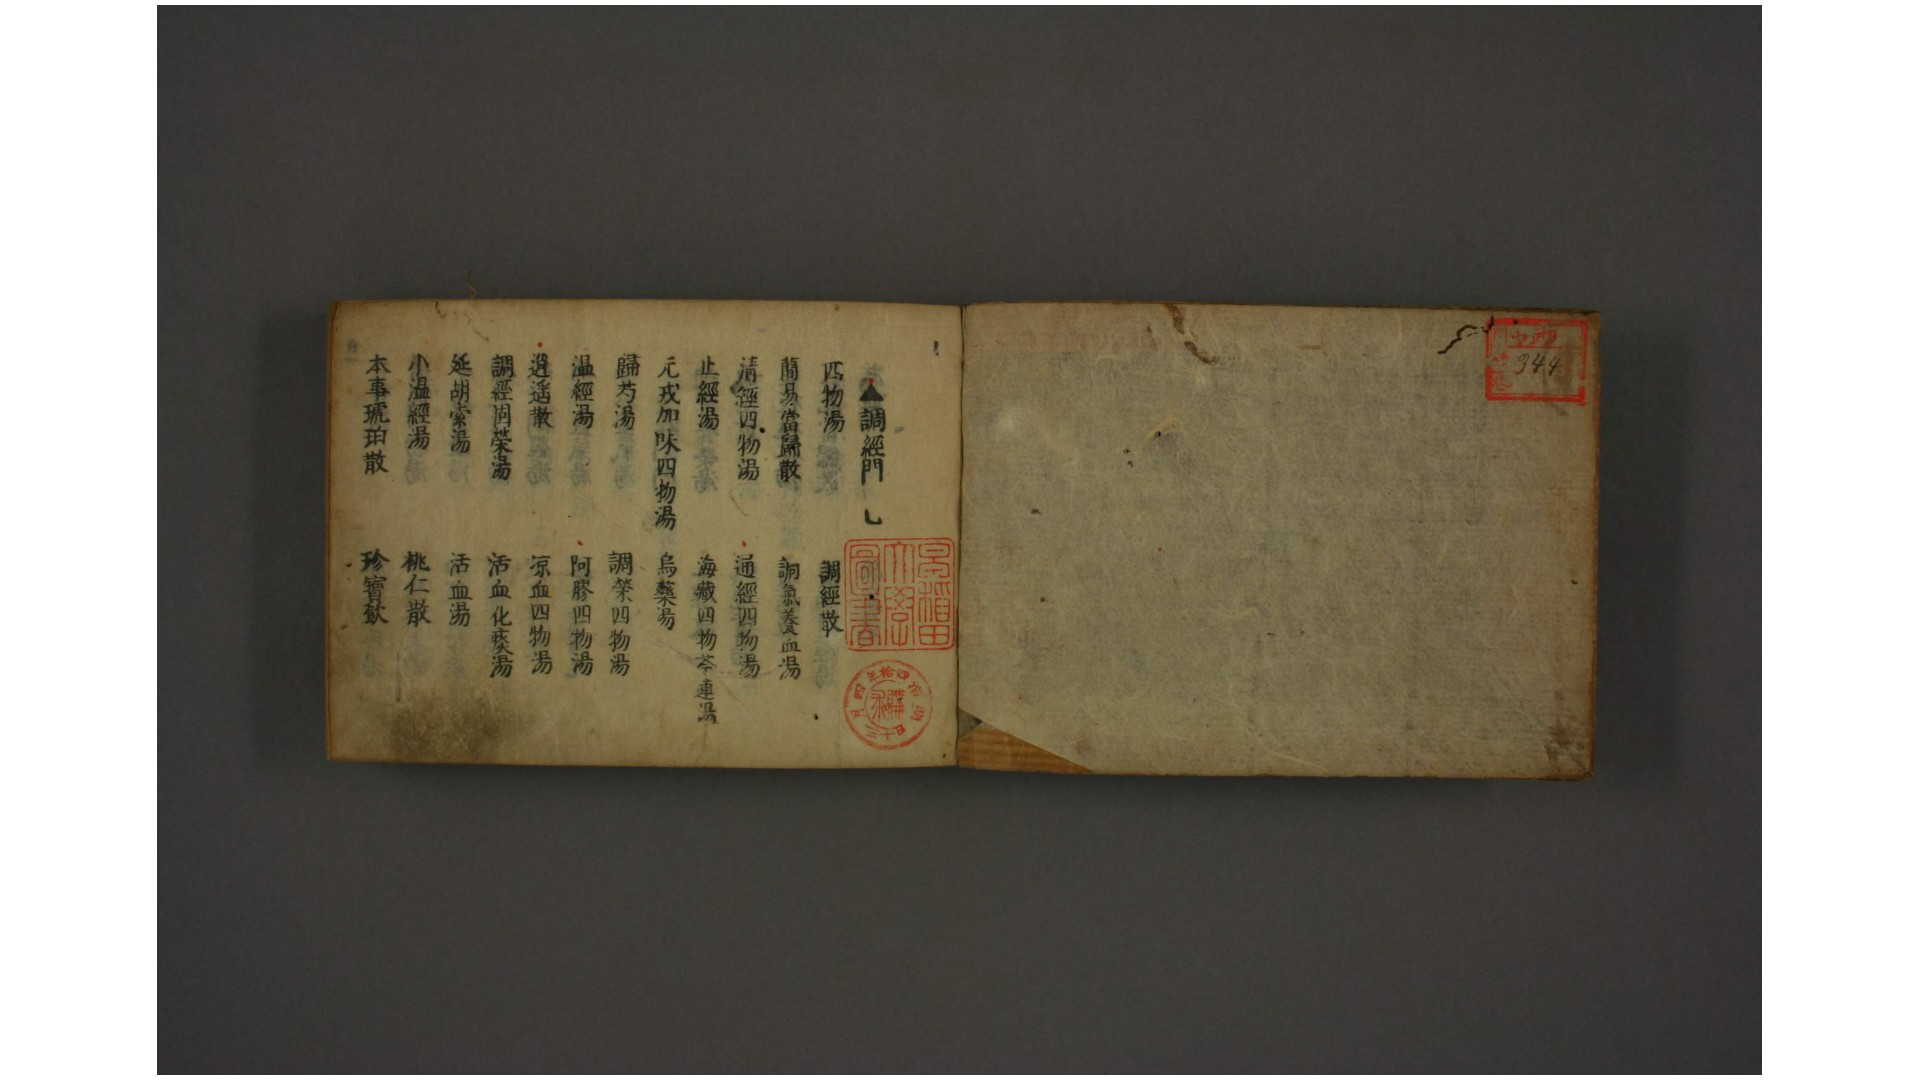 344
▲調經門
四物湯 調經散
簡易當歸散 調氣養血湯
清經四物湯 通經四物湯
止經湯 海藏四物苓連湯
元戎加味四物湯 烏藥湯
歸芍湯 調榮四物湯
温經湯 阿膠四物湯
逍遥散 凉血四物湯
調經固榮湯 活血化痰湯
延胡索湯 活血湯
小温經湯 桃仁散
本事琥珀散 珍寶飲
早稲田
大學
圖書
明治四拾年四月三十日
購求